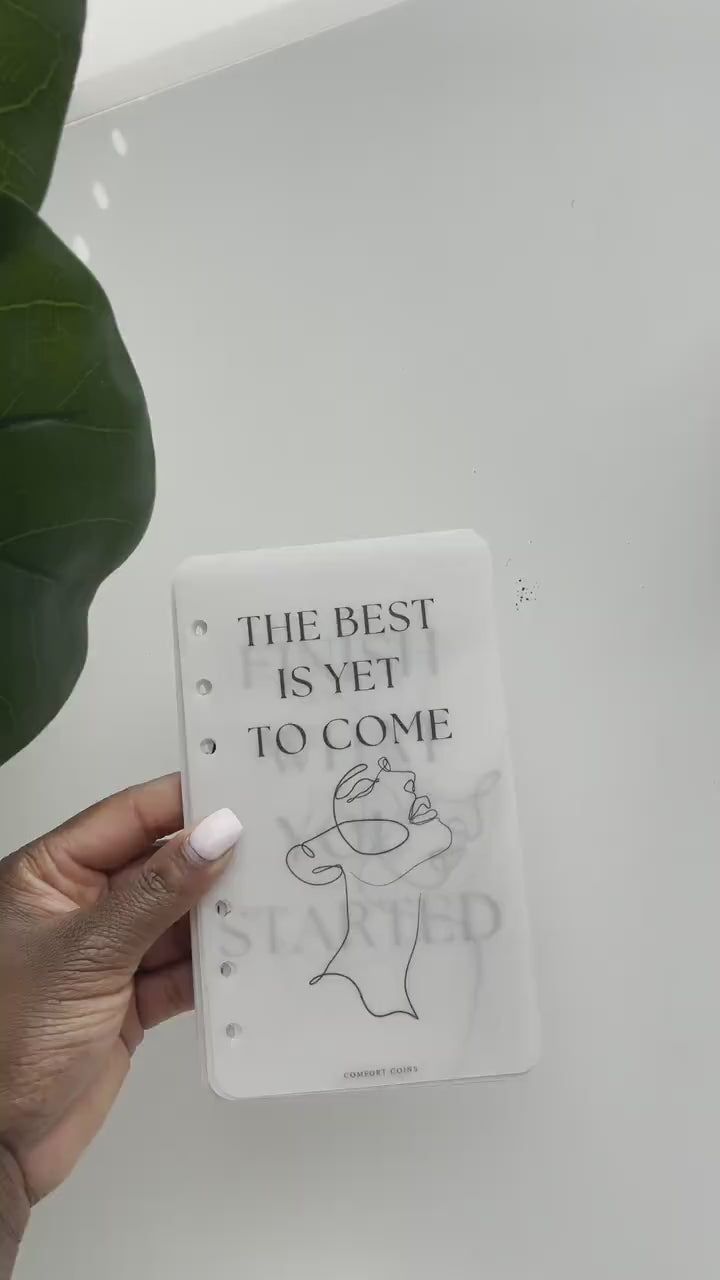 THE BEST
IS YET
TO COME
FINISH
WHAT
YOU
STARTED
COMFORT COINS